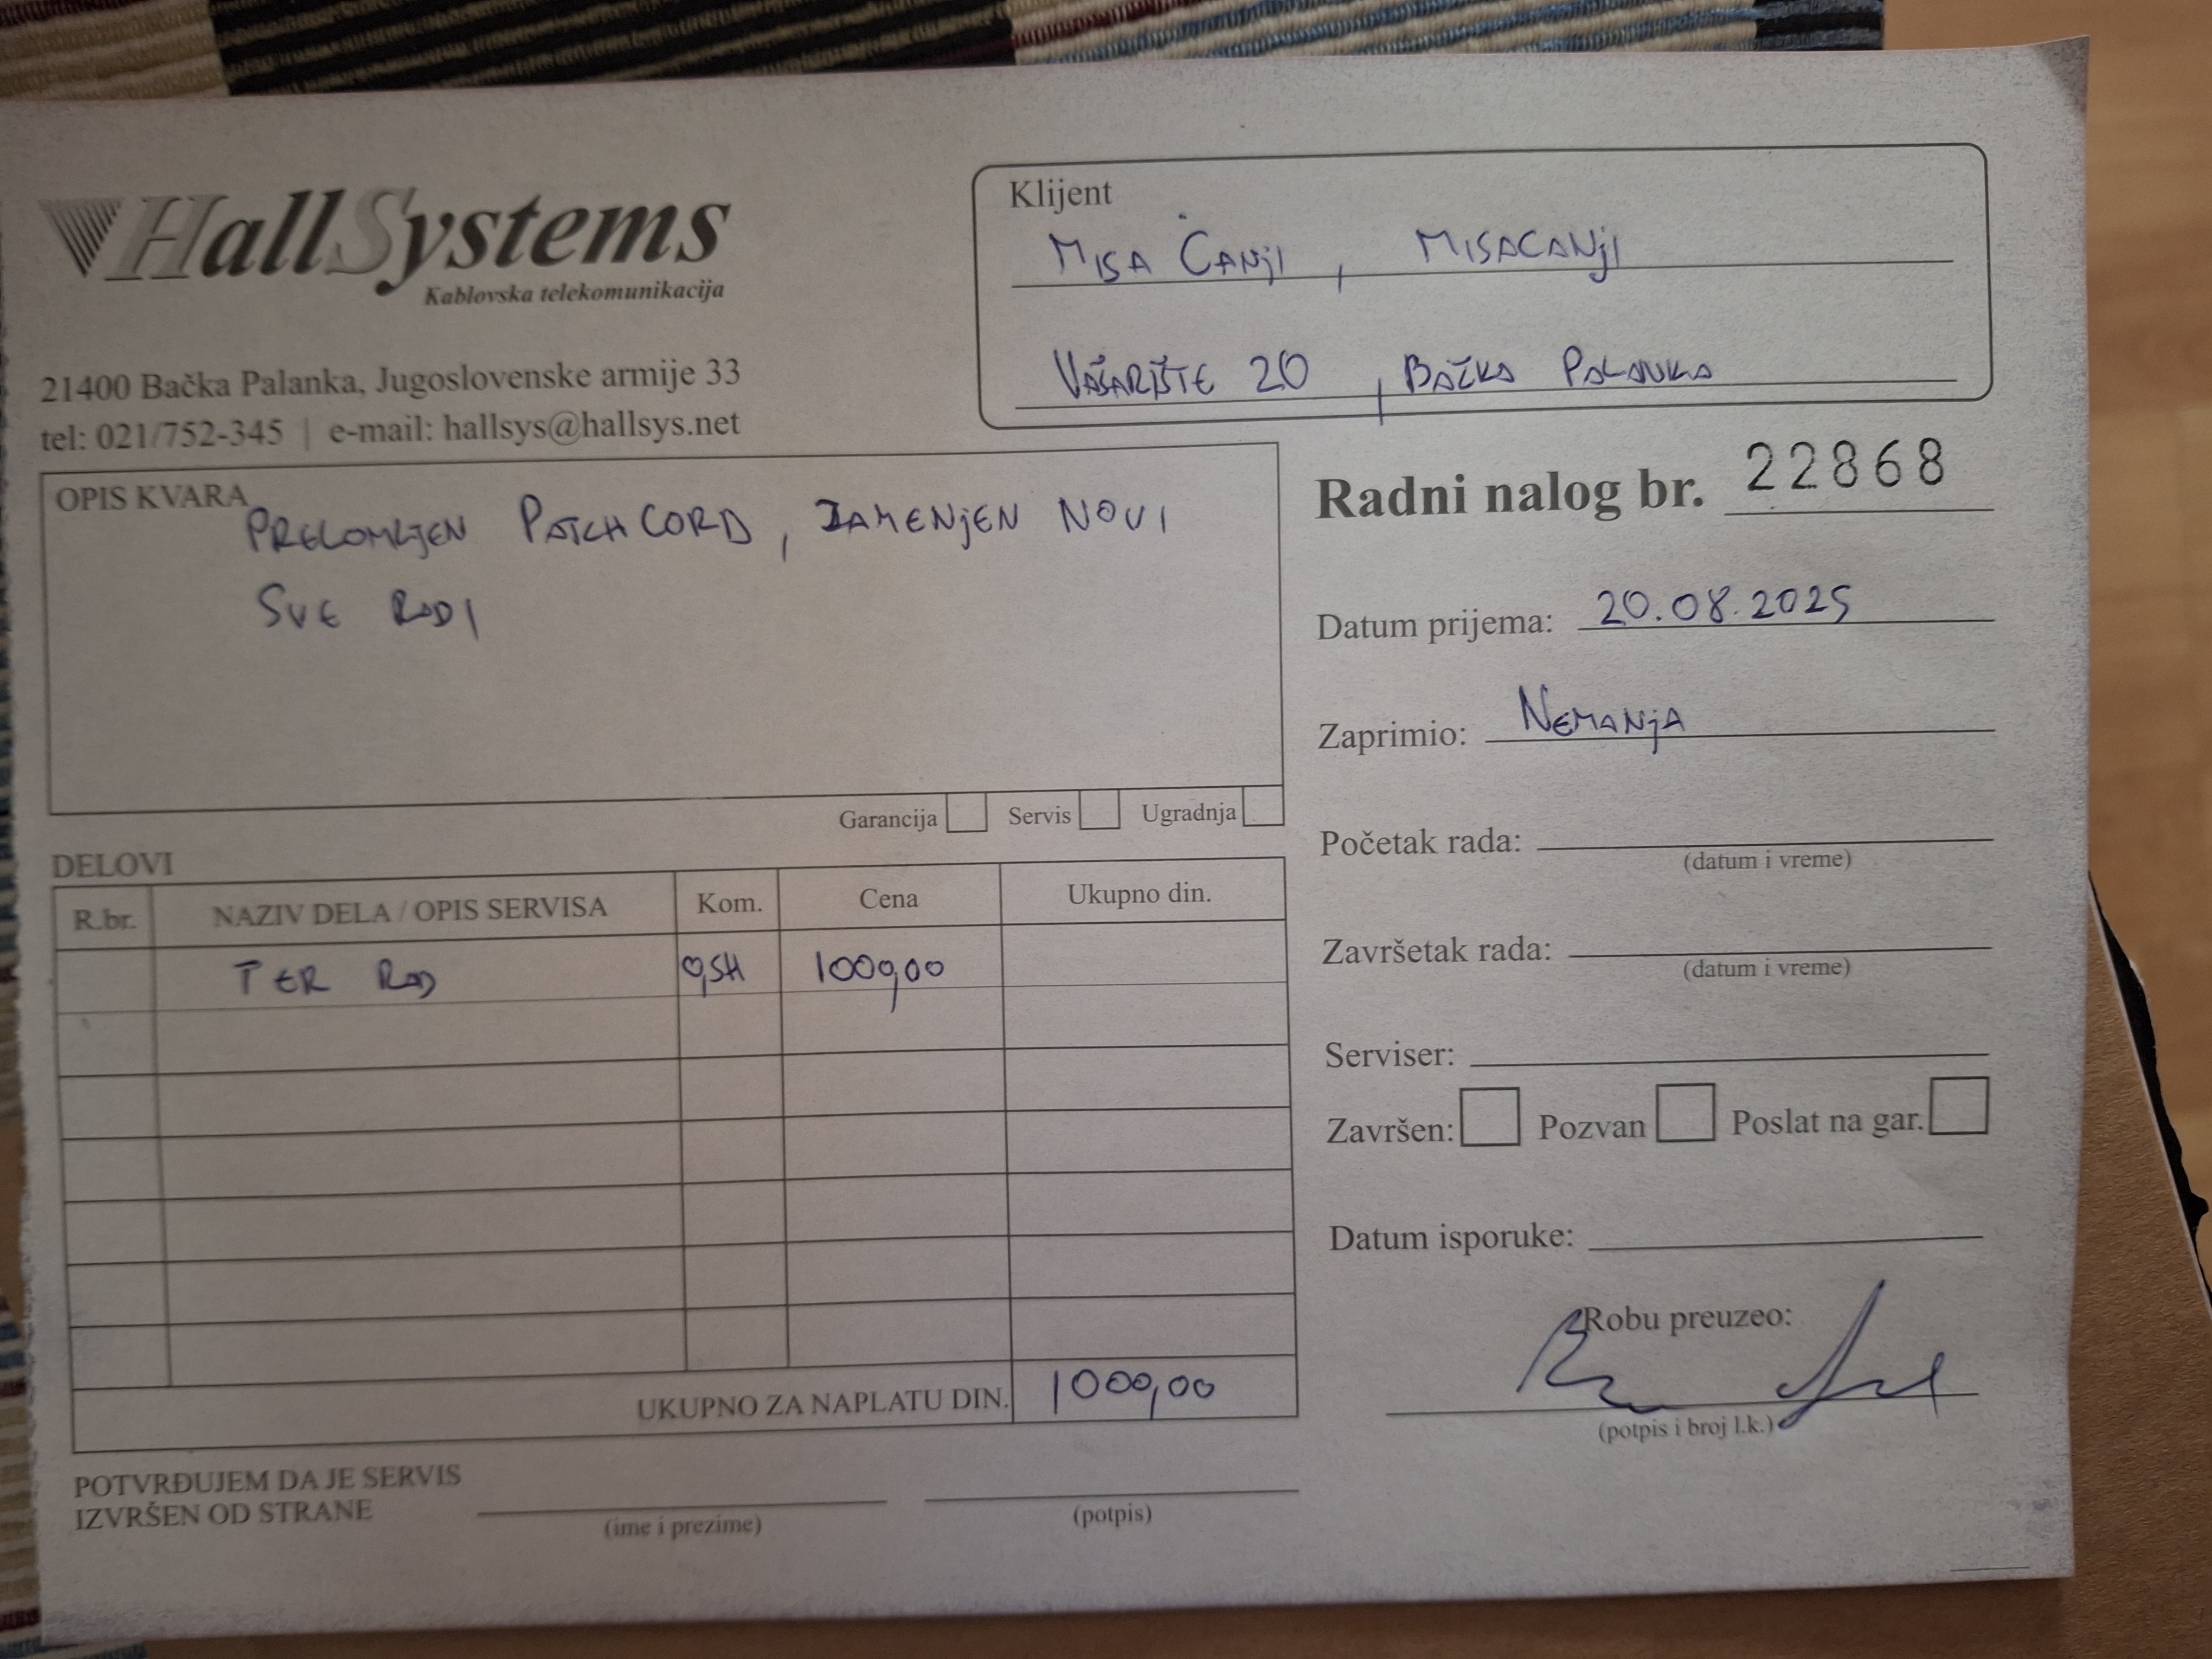 HallSystems
Kablovska telekomunikacija
21400 Bačka Palanka, Jugoslovenske armije 33
tel: 021/752-345 | e-mail: hallsys@hallsys.net
Klijent
MISA ČANjI, MISACANjI
VAŠARIŠTE 20, BAČKA PALANKA
OPIS KVARA
PRELOMLJEN PATCHCORD, ZAMENjEN NOVI
SVE RADI
Garancija Servis Ugradnja
Radni nalog br. 22868
Datum prijema: 20.08.2025
Zaprimio: NEMANjA
Početak rada:
(datum i vreme)
Završetak rada:
(datum i vreme)
Serviser:
Završen: Pozvan Poslat na gar.
Datum isporuke:
Robu preuzeo:
(potpis i broj l.k.)
DELOVI
R.br. NAZIV DELA / OPIS SERVISA Kom. Cena Ukupno din.
TER RAD 0,5H 1000,00
UKUPNO ZA NAPLATU DIN. 1000,00
POTVRĐUJEM DA JE SERVIS
IZVRŠEN OD STRANE
(ime i prezime) (potpis)